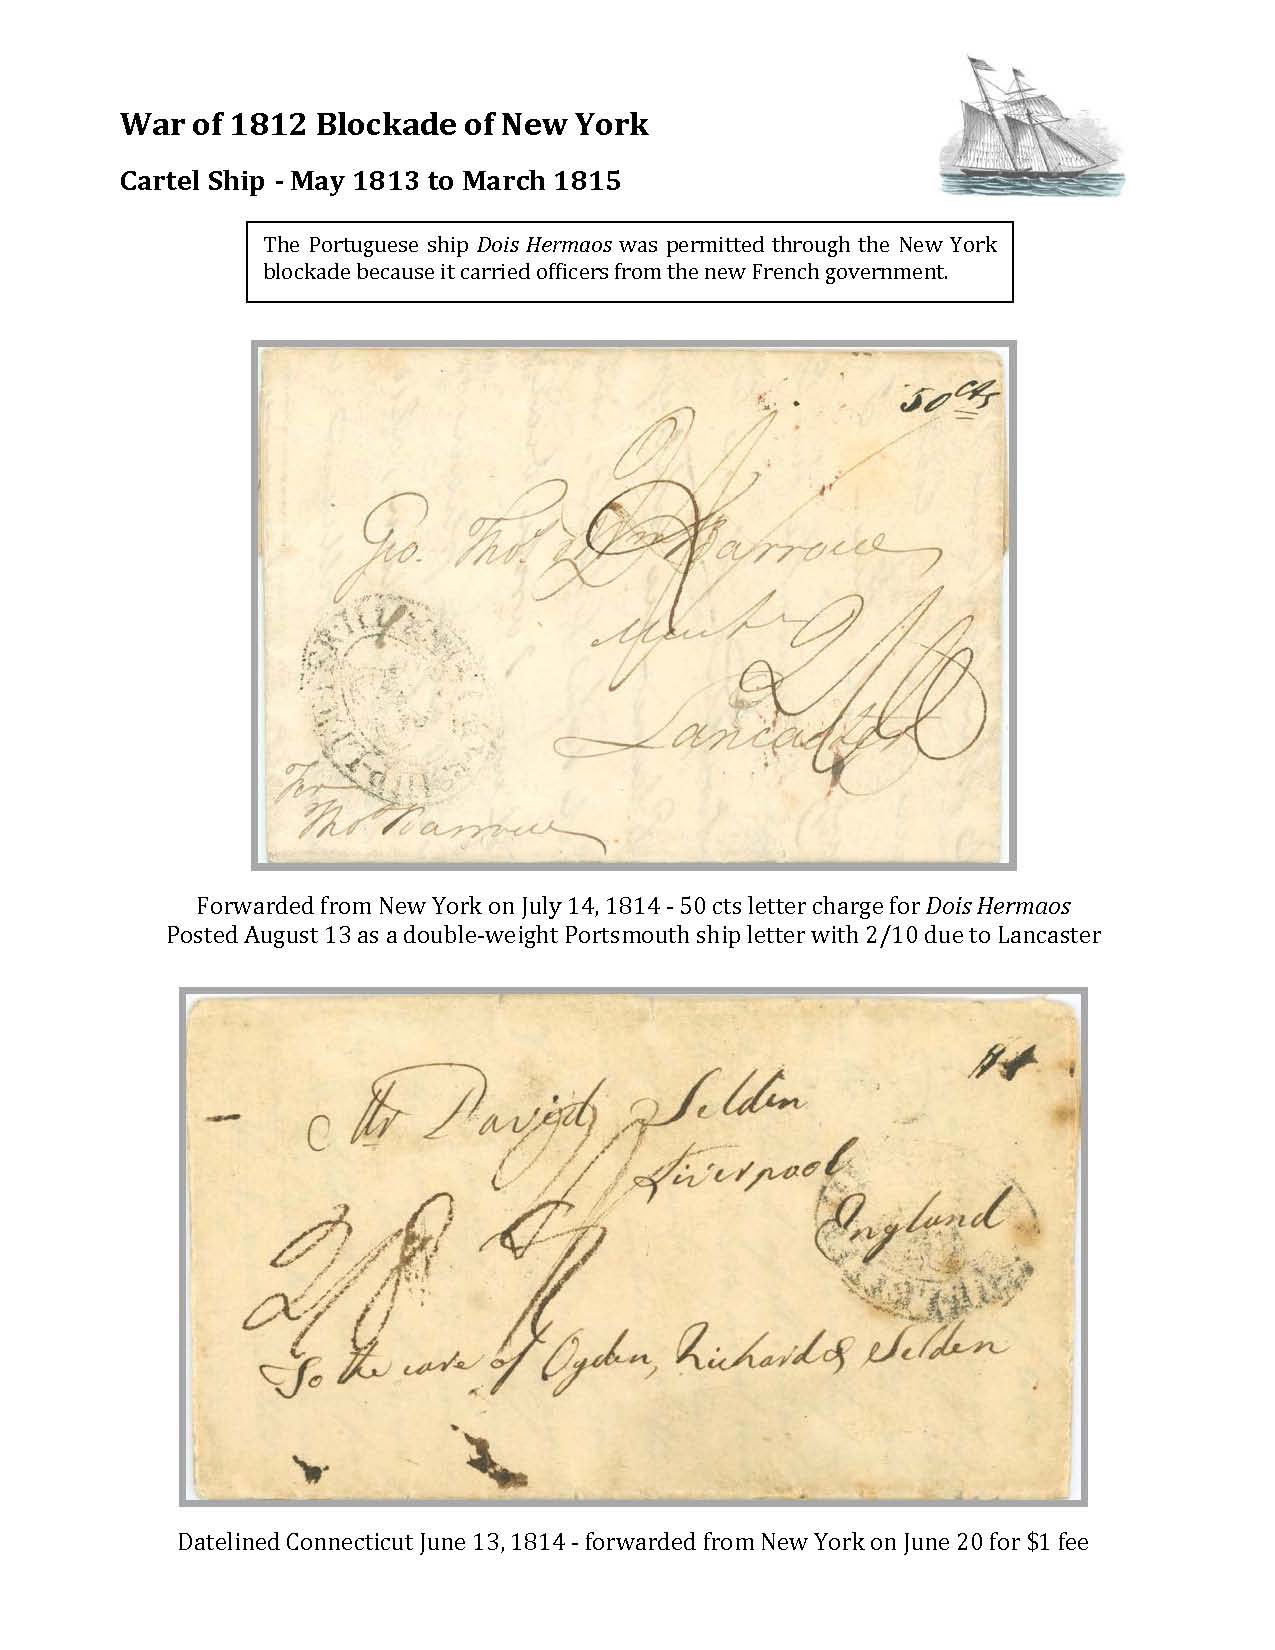 War of 1812 Blockade of New York
Cartel Ship - May 1813 to March 1815
The Portuguese ship Dois Hermaos was permitted through the New York
blockade because it carried officers from the new French government.
50 cts
Geo. Thos. & Wm Barrow
2/10
Lancaster
Per
Thos Barrow
Forwarded from New York on July 14, 1814 - 50 cts letter charge for Dois Hermaos
Posted August 13 as a double-weight Portsmouth ship letter with 2/10 due to Lancaster
Mr David Selden
Liverpool
England
To the care of Ogden, Richards & Selden
Datelined Connecticut June 13, 1814 - forwarded from New York on June 20 for $1 fee